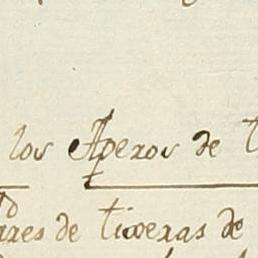 los Aperos de t
ares de tixeras de